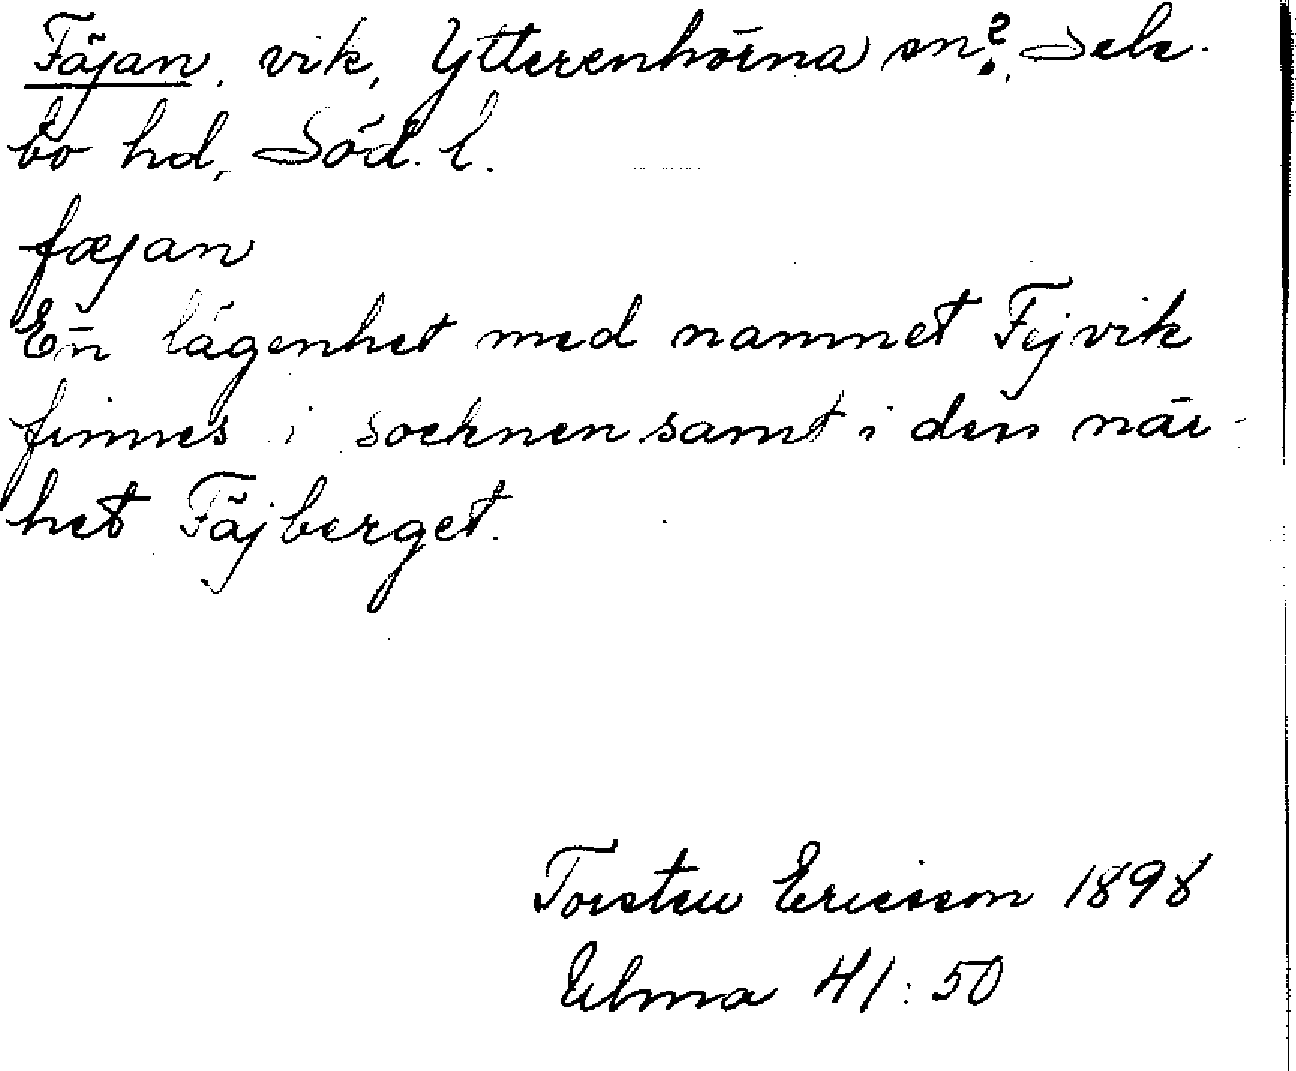 Fäjan, vik, Ytterenhörna sn?, Sele-
bo hd, Söd. l.
fæjan
En lägenhet med namnet Fejvik
finnes i socknen samt i den när-
het Fäjberget.
Torsten Ericsson 1898
Elma 41:50